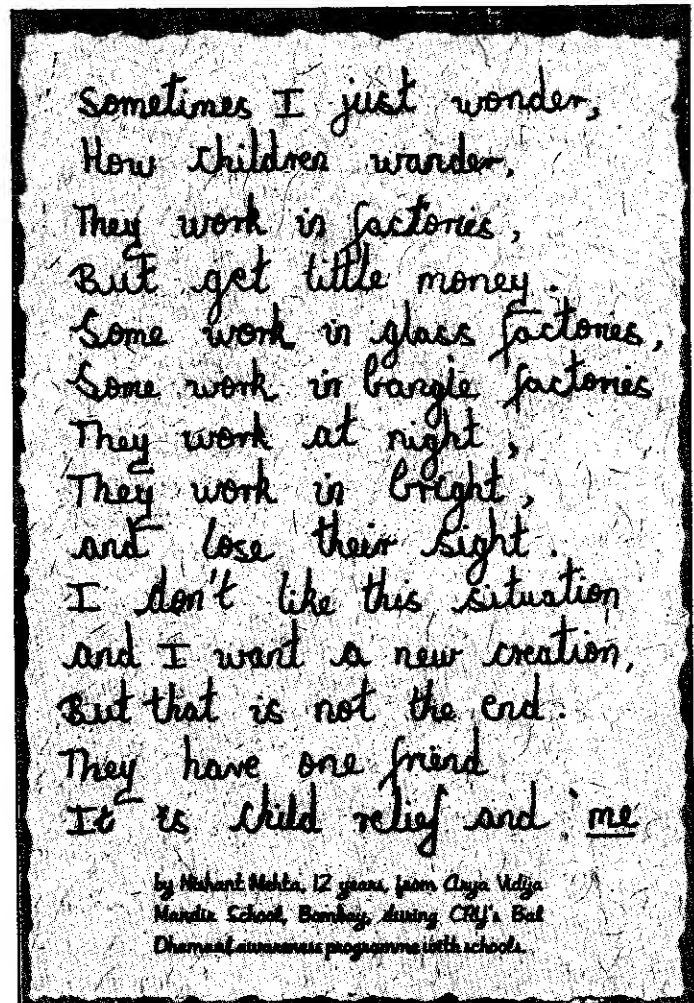 Sometimes I just wonder,
How children wander,
They work in factories,
But get little money.
Some work in glass factories,
Some work in bangle factories
They work at night,
They work in bright,
and lose their sight.
I don't like this situation
and I want a new creation,
But that is not the end.
They have one friend
It is child relief and me
by Nishant Mehta, 12 years, from Arya Vidya
Mandir School, Bombay, during CRY's Bal
Dhamaal awareness programme with schools.